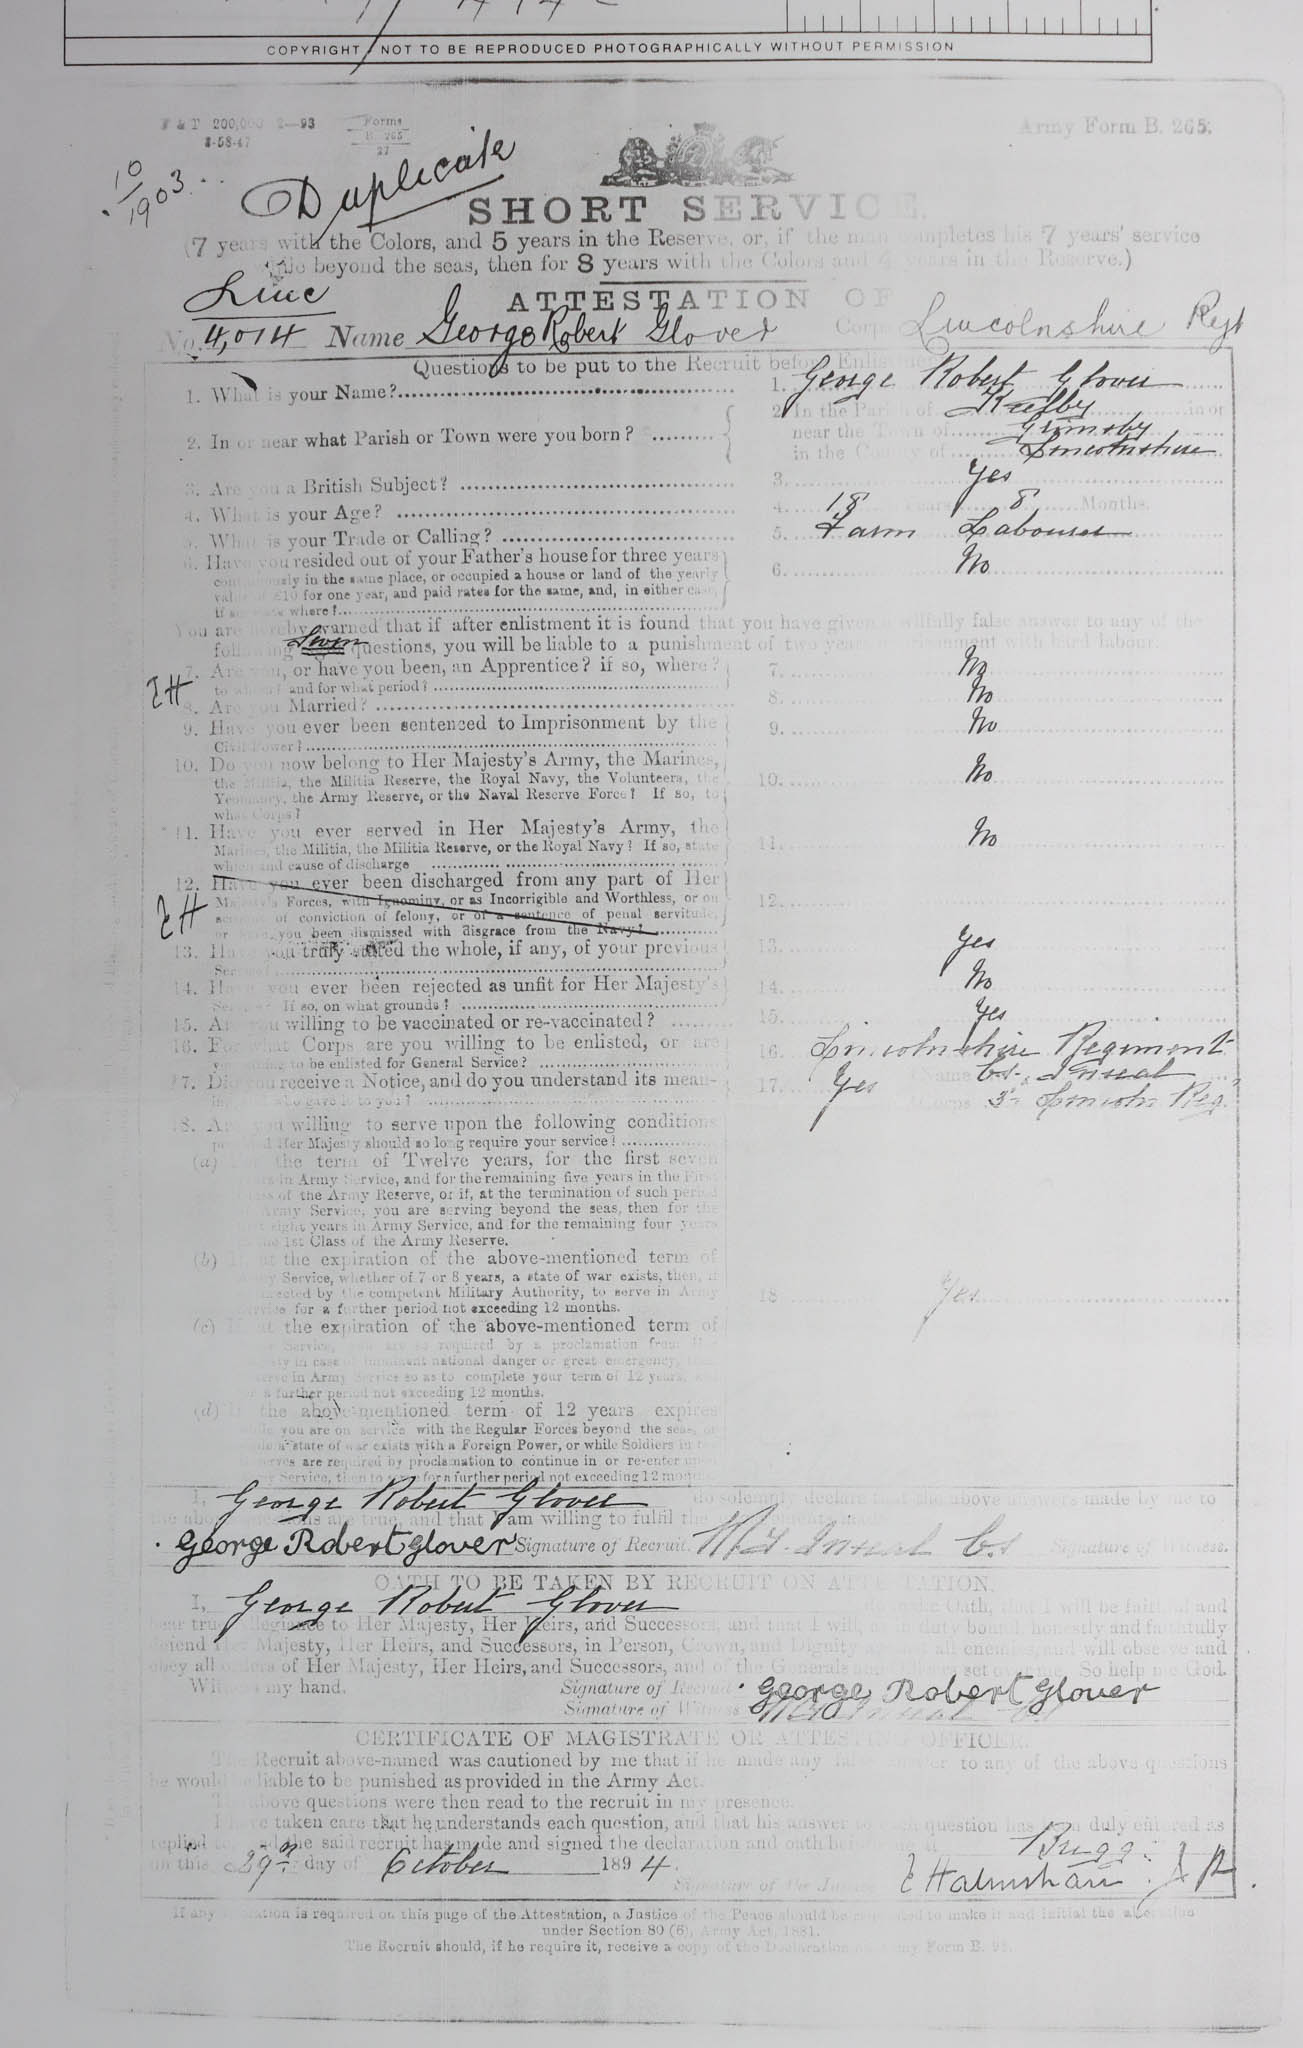 COPYRIGHT NOT TO BE REPRODUCED PHOTOGRAPHICALLY WITHOUT PERMISSION
200,000 2—93 Forms B. 265 27 Army Form B. 265.
10/1903
Duplicate
SHORT SERVICE.
(7 years with the Colors, and 5 years in the Reserve, or, if the man completes his 7 years' service
while beyond the seas, then for 8 years with the Colors and 4 years in the Reserve.)
Linc
ATTESTATION OF
No. 4,014 Name George Robert Glover Corps Lincolnshire Regt
Questions to be put to the Recruit before Enlistment
1. What is your Name? 1. George Robert Glover
2. In or near what Parish or Town were you born? 2. In the Parish of in or
near the Town of Grimsby
in the County of Lincolnshire
3. Are you a British Subject? 3. Yes
4. What is your Age? 4. 18 Years 8 Months.
5. What is your Trade or Calling? 5. Farm Labourer
6. Have you resided out of your Father's house for three years 6. No
continuously in the same place, or occupied a house or land of the yearly
value of £10 for one year, and paid rates for the same, and, in either case,
if so, where?
You are hereby warned that if after enlistment it is found that you have given a wilfully false answer to any of the
following Seven questions, you will be liable to a punishment of two years imprisonment with hard labour.
7. Are you, or have you been, an Apprentice? if so, where? 7. No
to whom? and for what period?
EH
8. Are you Married? 8. No
9. Have you ever been sentenced to Imprisonment by the 9. No
Civil Power?
10. Do you now belong to Her Majesty's Army, the Marines, 10. No
the Militia, the Militia Reserve, the Royal Navy, the Volunteers, the
Yeomanry, the Army Reserve, or the Naval Reserve Force? If so, to
what Corps?
11. Have you ever served in Her Majesty's Army, the 11. No
Marines, the Militia, the Militia Reserve, or the Royal Navy? If so, state
which and cause of discharge
12. Have you ever been discharged from any part of Her 12.
EH
Majesty's Forces, with Ignominy, or as Incorrigible and Worthless, or on
account of conviction of felony, or of a sentence of penal servitude,
or have you been dismissed with disgrace from the Navy?
13. Have you truly stated the whole, if any, of your previous 13. Yes
Service?
14. Have you ever been rejected as unfit for Her Majesty's 14. No
Service? If so, on what grounds?
15. Are you willing to be vaccinated or re-vaccinated? 15. Yes
16. For what Corps are you willing to be enlisted, or are 16. Lincolnshire Regiment
you willing to be enlisted for General Service?
17. Did you receive a Notice, and do you understand its mean- 17. Yes Name
ing, and who gave it to you? Corps 3rd Lincoln Reg.
18. Are you willing to serve upon the following conditions
provided Her Majesty should so long require your service?
(a) For the term of Twelve years, for the first seven
years in Army Service, and for the remaining five years in the First
Class of the Army Reserve, or if, at the termination of such period
of Army Service, you are serving beyond the seas, then for the
first eight years in Army Service, and for the remaining four years
in the 1st Class of the Army Reserve.
(b) If at the expiration of the above-mentioned term of
Army Service, whether of 7 or 8 years, a state of war exists, then, if
directed by the competent Military Authority, to serve in Army
Service for a further period not exceeding 12 months. 18 Yes
(c) If at the expiration of the above-mentioned term of
Army Service, you are so required by a proclamation from Her
Majesty in case of imminent national danger or great emergency, then
to serve in Army Service so as to complete your term of 12 years, and
for a further period not exceeding 12 months.
(d) If the above-mentioned term of 12 years expires
while you are on service with the Regular Forces beyond the seas, or
while a state of war exists with a Foreign Power, or while Soldiers in the
Reserves are required by proclamation to continue in or re-enter upon
Army Service, then to serve for a further period not exceeding 12 months.
I, George Robert Glover do solemnly declare that the above answers made by me to
the above questions are true, and that I am willing to fulfil the engagements made.
George Robert Glover Signature of Recruit. Signature of Witness.
OATH TO BE TAKEN BY RECRUIT ON ATTESTATION.
I, George Robert Glover do make Oath, that I will be faithful and
bear true Allegiance to Her Majesty, Her Heirs, and Successors, and that I will, as in duty bound, honestly and faithfully
defend Her Majesty, Her Heirs, and Successors, in Person, Crown, and Dignity against all enemies, and will observe and
obey all orders of Her Majesty, Her Heirs, and Successors, and of the Generals and Officers set over me. So help me God.
Witness my hand. Signature of Recruit George Robert Glover
Signature of Witness
CERTIFICATE OF MAGISTRATE OR ATTESTING OFFICER.
The Recruit above-named was cautioned by me that if he made any false answer to any of the above questions
he would be liable to be punished as provided in the Army Act.
The above questions were then read to the recruit in my presence.
I have taken care that he understands each question, and that his answer to each question has been duly entered as
replied to, and the said recruit has made and signed the declaration and oath before me at Brigg
on this 29th day of October 1894.
Signature of the Justice J P.
If any alteration is required on this page of the Attestation, a Justice of the Peace should be requested to make it and initial the alteration
under Section 80 (6), Army Act, 1881.
The Recruit should, if he require it, receive a copy of the Declaration on Army Form B.